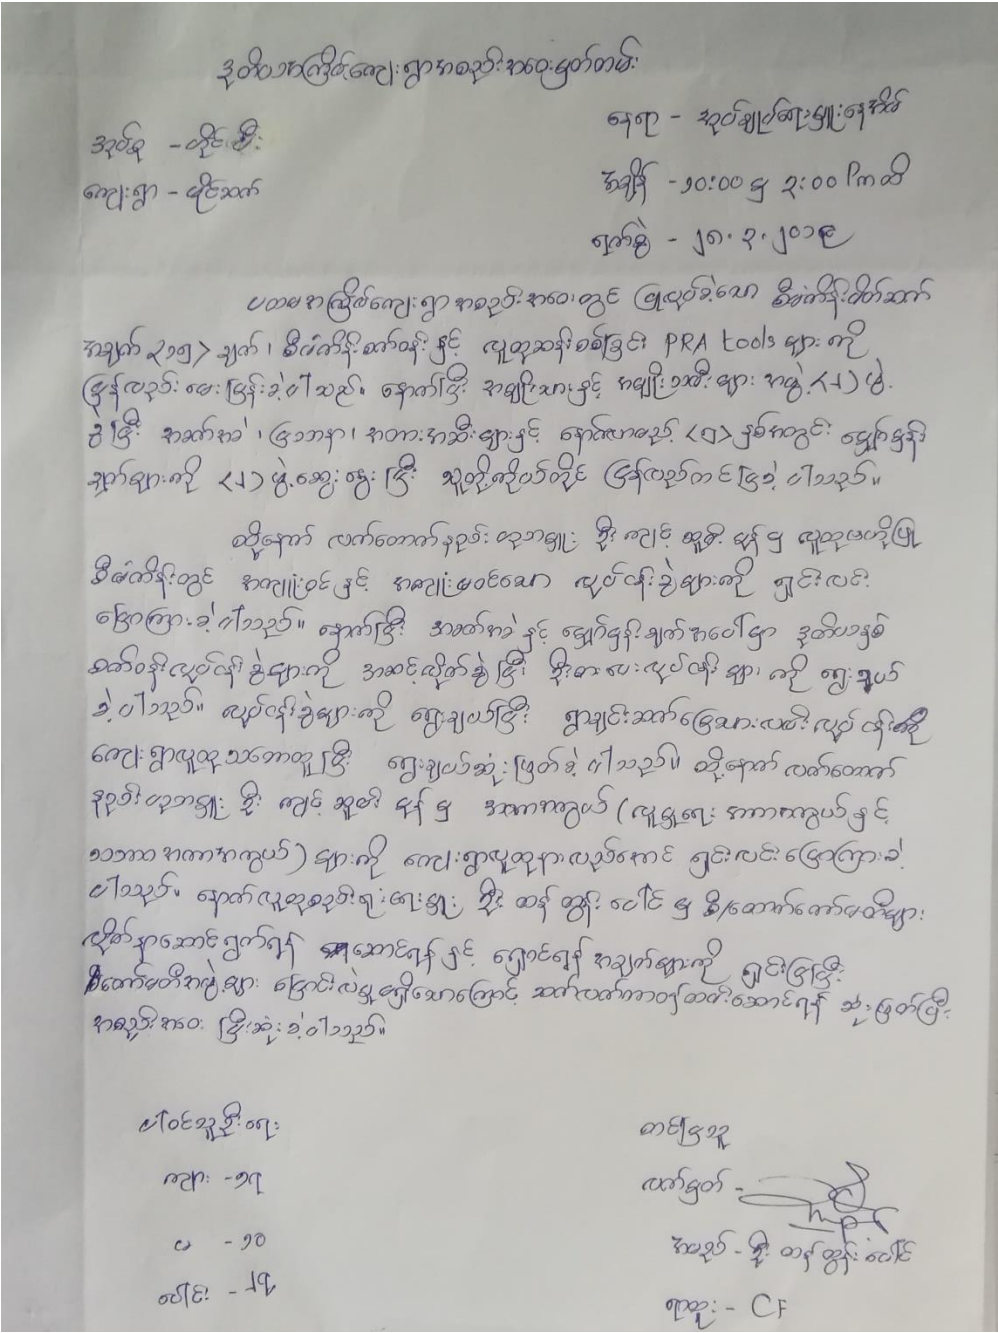 ဒုတိယအကြိမ်ကျေးရွာအစည်းအဝေးမှတ်တမ်း
နေရာ - အုပ်ချုပ်ရေးမှူးနေအိမ်
အုပ်စု - တိုင်
ကျေးရွာ - မိုင်ဆက်
အချိန် - ၁၀:၀၀ မှ ၃:၀၀ Pm ထိ
ရက်စွဲ - ၂၈.၃.၂၀၁၉
ပထမအကြိမ်ကျေးရွာအစည်းအဝေးတွင် ပြုလုပ်ခဲ့သော စီမံကိန်းမိတ်ဆက်
အချက် <၁၅> ချက်၊ စီမံကိန်းစက်ဝန်းနှင့် လူထုဆန်းစစ်ခြင်း PRA tools များကို
ပြန်လည်မေးမြန်းခဲ့ပါသည်။ နောက်ပြီး အမျိုးသားနှင့် အမျိုးသမီးများ အဖွဲ့ <၂> ဖွဲ့
ခွဲပြီး အခက်အခဲ၊ ပြဿနာ၊ အတားအဆီးများနှင့် နောက်လာမည့် <၅> နှစ်အတွင်း မျှော်မှန်း
ချက်များကို <၂> ဖွဲ့ဆွေးနွေးပြီး သူတို့ကိုယ်တိုင် ပြန်လည်တင်ပြခဲ့ပါသည်။
ထို့နောက် လက်ထောက်နည်းပညာမှူး ဦးကျင့်ဆူမ်းမုန် မှ လူထုဗဟိုပြု
စီမံကိန်းတွင် အကျုံးဝင်နှင့် အကျုံးမဝင်သော လုပ်ငန်းခွဲများကို ရှင်းလင်း
ပြောကြားခဲ့ပါသည်။ နောက်ပြီး အခက်အခဲနှင့် မျှော်မှန်းချက်အပေါ်မှာ ဒုတိယနှစ်
စက်ဝန်းလုပ်ငန်းခွဲများကို အဆင့်လိုက်ခွဲပြီး ဦးစားပေးလုပ်ငန်းများကို ရွေးချယ်
ခဲ့ပါသည်။ လုပ်ငန်းခွဲများကို ရွေးချယ်ပြီး ရွာချင်းဆက်မြေသားလမ်းလုပ်ငန်းကို
ကျေးရွာလူထုသဘောတူပြီး ရွေးချယ်ဆုံးဖြတ်ခဲ့ပါသည်။ ထို့နောက် လက်ထောက်
နည်းပညာမှူး ဦးကျင့်ဆူမ်းမုန် မှ အကာအကွယ် (လူမှုရေး အကာအကွယ်နှင့်
သဘာဝအကာအကွယ်) များကို ကျေးရွာလူထုနားလည်အောင် ရှင်းလင်းပြောကြားခဲ့
ပါသည်။ နောက်လူထုစည်းရုံးရေးမှူး ဦးထန်ထွန်းပေါင် မှ စီ/ထောက်ကော်မတီများ
လိုက်နာဆောင်ရွက်ရန် ဆောင်ရန်နှင့် ရှောင်ရန် အချက်များကို ရှင်းပြပြီး
ကော်မတီအဖွဲ့များ ပြောင်းလဲမှုမရှိသောကြောင့် ဆက်လက်တာဝန်ထမ်းဆောင်ရန် ဆုံးဖြတ်ပြီး
အစည်းအဝေး ပြီးဆုံးခဲ့ပါသည်။
ပါဝင်သူဦးရေ
ကျား - ၁၇
မ - ၁၀
ပေါင်း - ၂၇
တင်ပြသူ
လက်မှတ် -
အမည် - ဦးထန်ထွန်းပေါင်
ရာထူး - CF